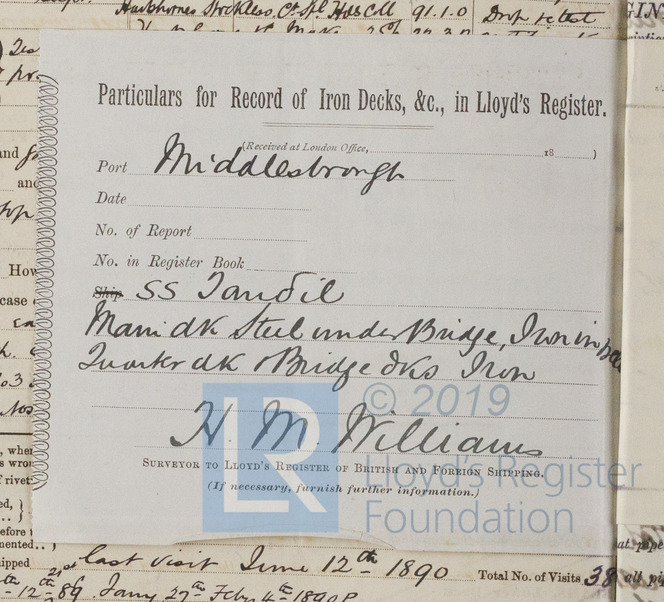 Hawthornes Stockless, Ct Stl 91.1.0 Drop & test
Particulars for Record of Iron Decks, &c., in Lloyd's Register.
(Received at London Office, 18 )
Port Middlesbrough
Date
No. of Report
No. in Register Book
Ship SS Tandil
Main dk Steel under Bridge, Iron in
Quarter dk & Bridge dks Iron
H. M. Williams
SURVEYOR TO LLOYD'S REGISTER OF BRITISH AND FOREIGN SHIPPING.
(If necessary, furnish further information.)
LR © 2019
Lloyd's Register
Foundation
last visit June 12th 1890 Total No. of Visits 38
12th 89. Jany 27th Feby 4th 1890
and
and
How
case
when
rivet
ed,